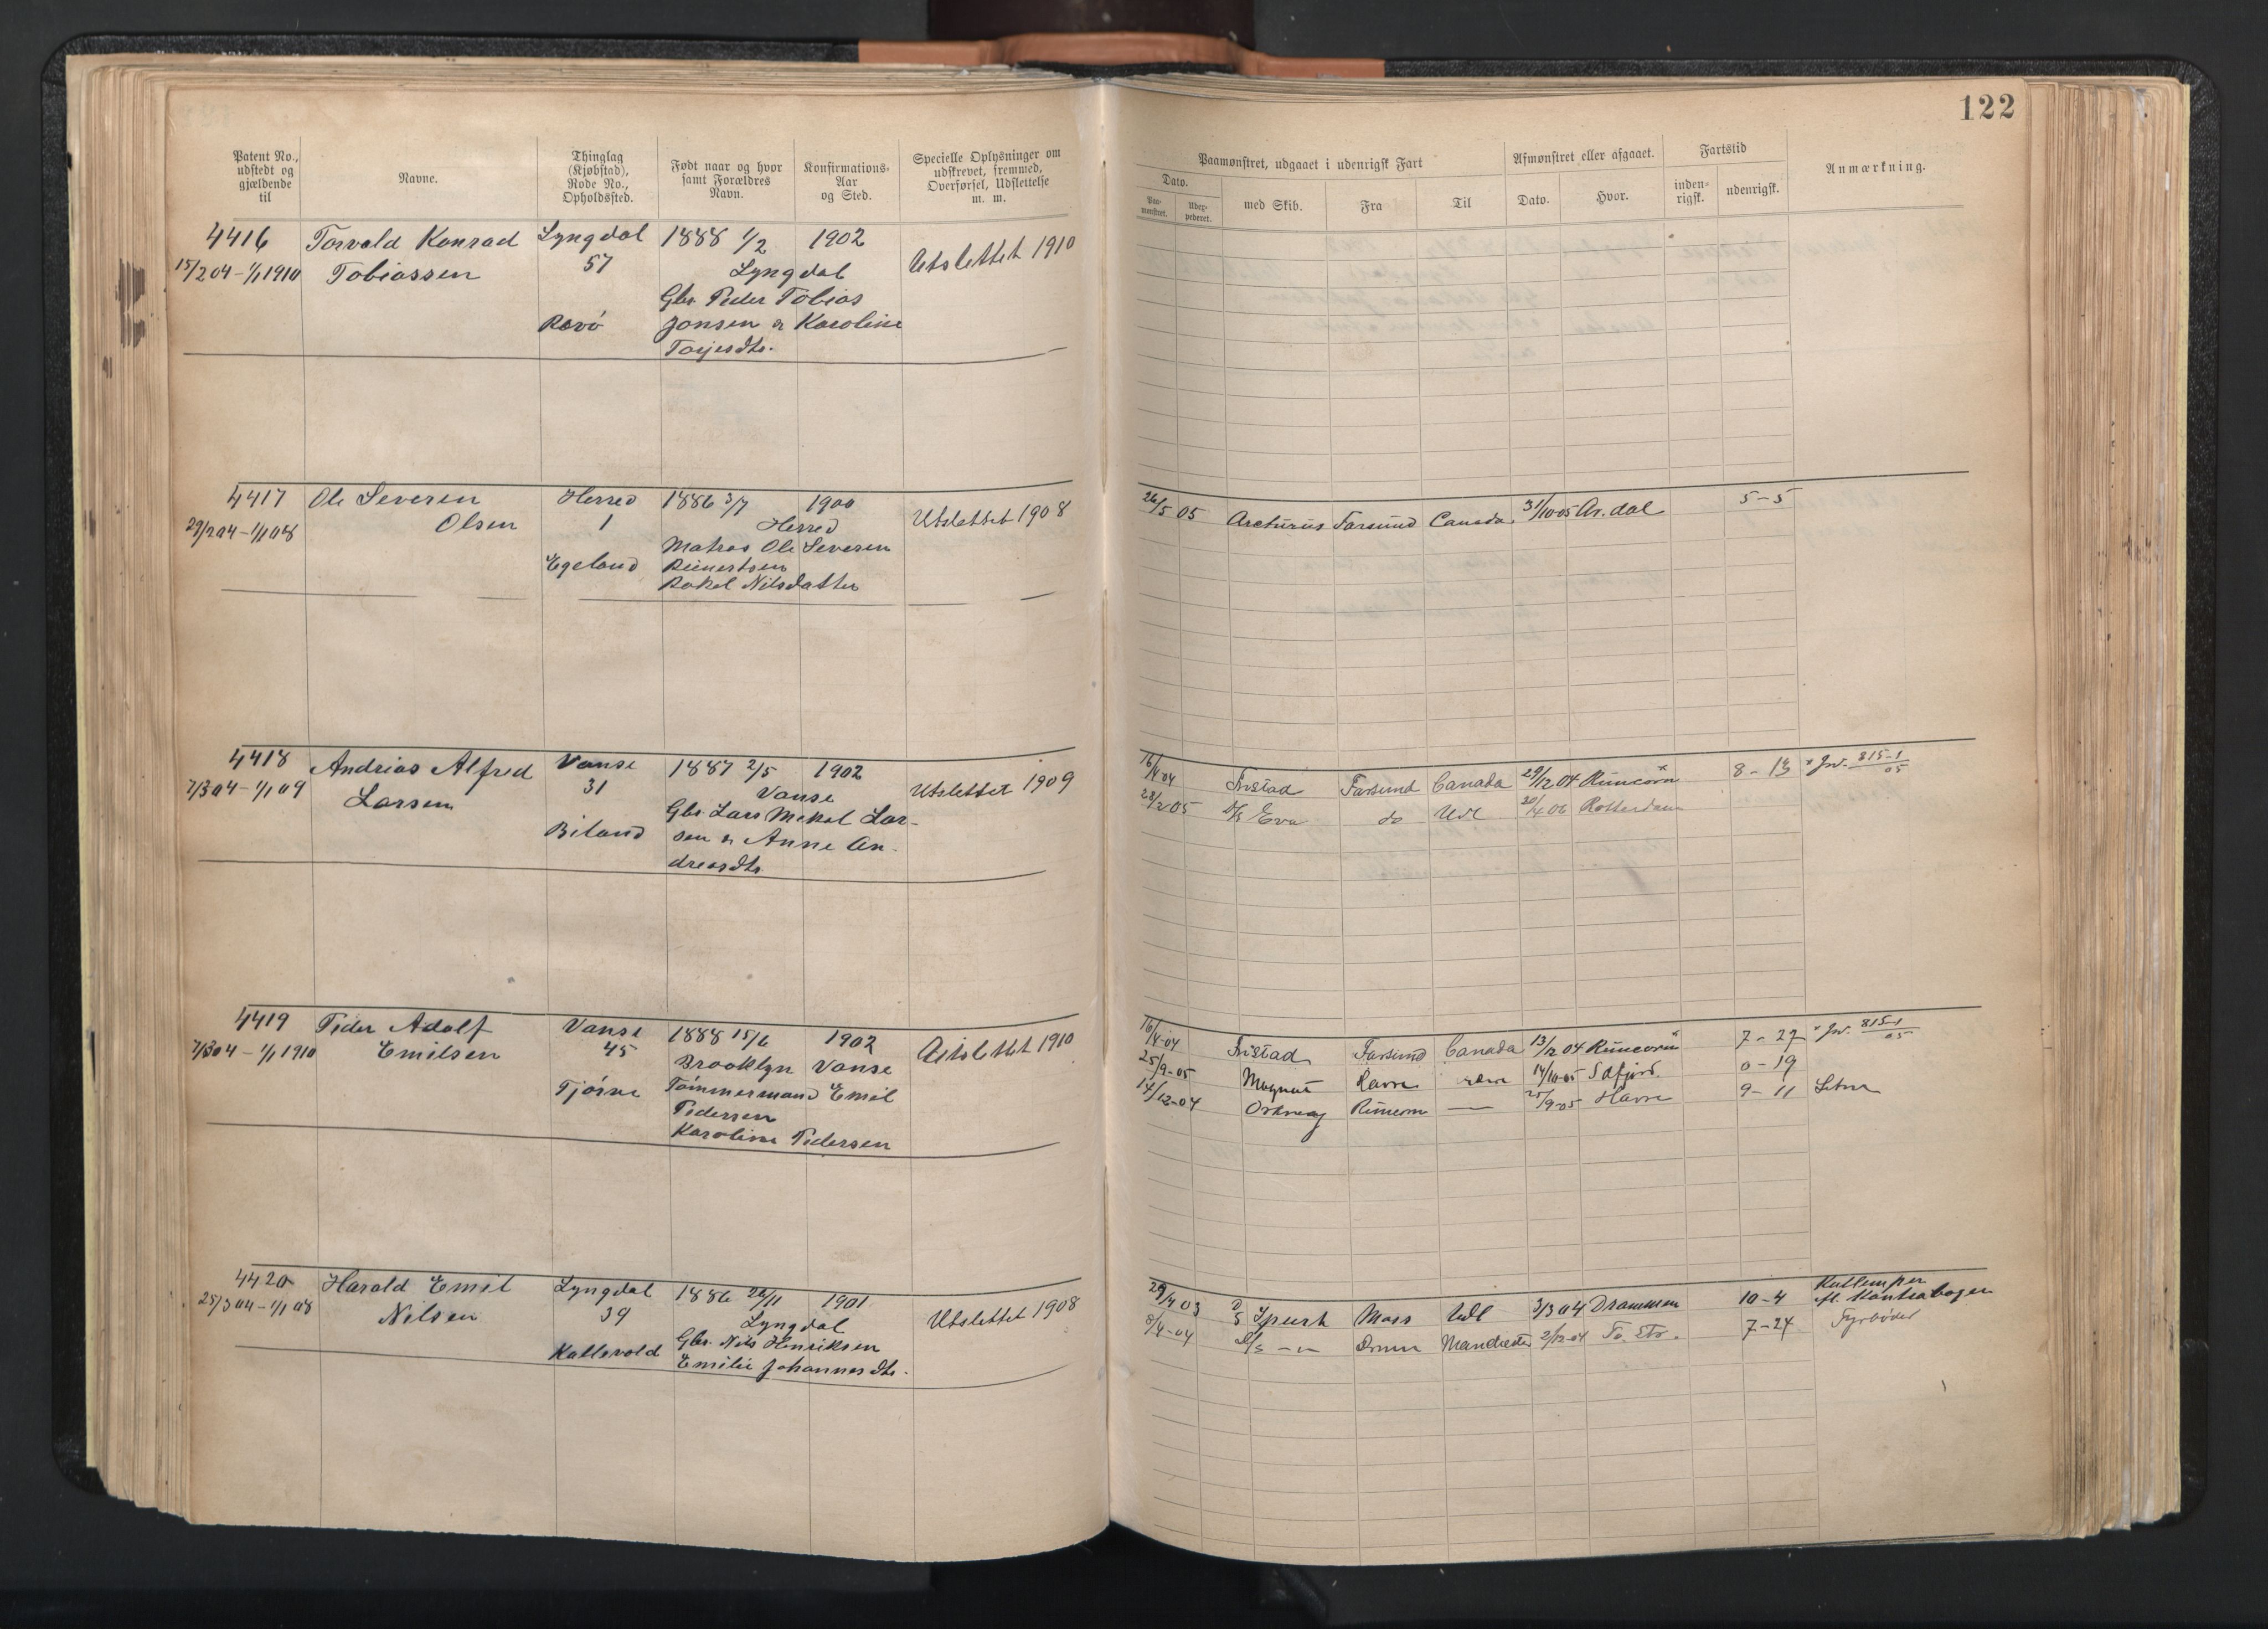 122
Patent No., udstedt og gjældende til
Navne.
Thinglag (Kjøbstad), Rode No., Opholdssted.
Født naar og hvor samt Forældres Navn.
Konfirmations-Aar og Sted.
Specielle Oplysninger om udskrevet, fremmed, Overførsel, Udslettelse m. m.
Paamønstret, udgaaet i udenrigsk Fart
Dato.
Paa-mønstret.
med Skib.
Fra
Til
Afmønstret eller afgaaet.
Dato.
Hvor.
Fartstid
inden-rigsk.
udenrigsk.
Anmærkning.
4416 Torvald Konrad Lyngdal 1888 1/2 1902 Utslettet 1910
15/2 04 - 1/1 1910 Tobiassen 57 Lyngdal
Gbr. Peder Tobias
Rævø Jonsen & Karoline
Torjesdtr.
4417 Ole Severin Herred 1886 3/7 1900 Utslettet 1908
29/2 04 - 1/1 08 Olsen 1 Herred
Matros Ole Severin
Egeland Reinertsen
Rakel Nilsdatter
26/5 05 Arcturus Farsund Canada 31/10 05 Ar.dal 5-5
4418 Andreas Alfred Vanse 1887 2/5 1902 Utslettet 1909
7/3 04 - 1/1 09 Larsen 31 Vanse
Gbr. Lars Mikal Lar-
Biland sen & Anne An-
dreasdtr.
16/4 04 Fristad Farsund Canada 29/12 04 Runcorn x 8-13 x Jr. 815-1/05
28/2 05 D/S Eva do Udl 20/4 06 Rotterdam
4419 Peder Adolf Vanse 1888 15/6 1902 Utslettet 1910
7/3 04 - 1/1 1910 Emilsen 45 Brooklyn Vanse
Tjørve Tømmermand Emil
Pedersen
Karoline Pedersen
16/4-04 Fristad Farsund Canada 13/12 04 Runcorn x 7-27 x Jr. 815-1/05
25/9-05 Magnat Havre 14/10-05 Sdfjord. 0-19
14/12-04 Runcorn — 25/9-05 Havre 9-11
4420 Harald Emil Lyngdal 1886 26/11 1901 Utslettet 1908
25/3 04 - 1/1 08 Nilsen 39 Lyngdal
Gbr. Nils Henriksen
Kallevold Emilie Johannesdtr.
29/4 03 D/S Moss Udl 3/3 04 Drammen 10-4 Kullemper
efl. Kontrabogen
8/4-04 D/S -"- Drmn Manchester 2/12-04 7-24 Fyrbøder